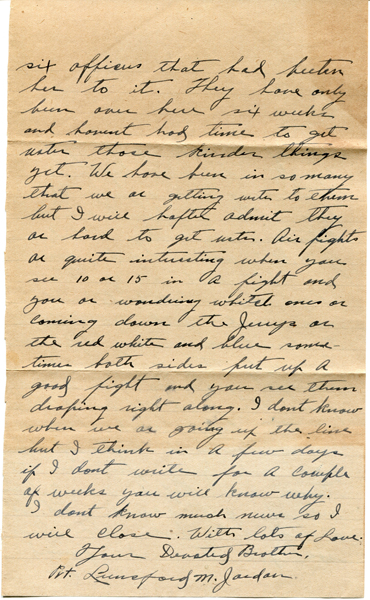 six officers that had beeten
her to it. They have only
been over here six weeks
and havent had time to get
uster those kinder things
yet. We have been in so many
that we ar getting uster to them
but I will hafter admit they
ar hard to get uster. Air fights
ar quite intersting when you
see 10 or 15 in a fight and
you ar wondring whitch ones ar
coming down the Jerrys or
the red white and blue some-
times both sides put up a
good fight and you see them
droping right along. I dont know
when we ar going up the line
but I think in a few days
if I dont write for a couple
of weeks you will know why.
I dont know much news so I
will close. With lots of Love.
Your Devoted Brother,
Pvt. Lunsford M. Jordan.